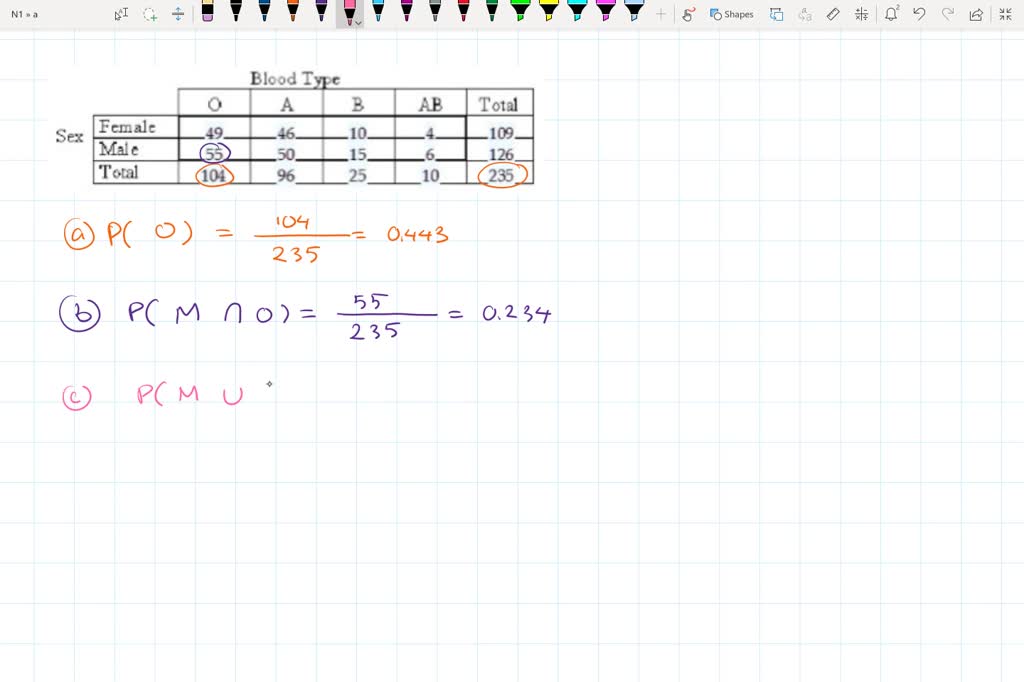 N1 » a
Shapes
2
Blood Type
O A B AB Total
Sex
Female 49 46 10 4 109
Male 55 50 15 6 126
Total 104 96 25 10 235
a P( O ) = 104/235 = 0.443
b P( M ∩ O ) = 55/235 = 0.234
c P( M ∪